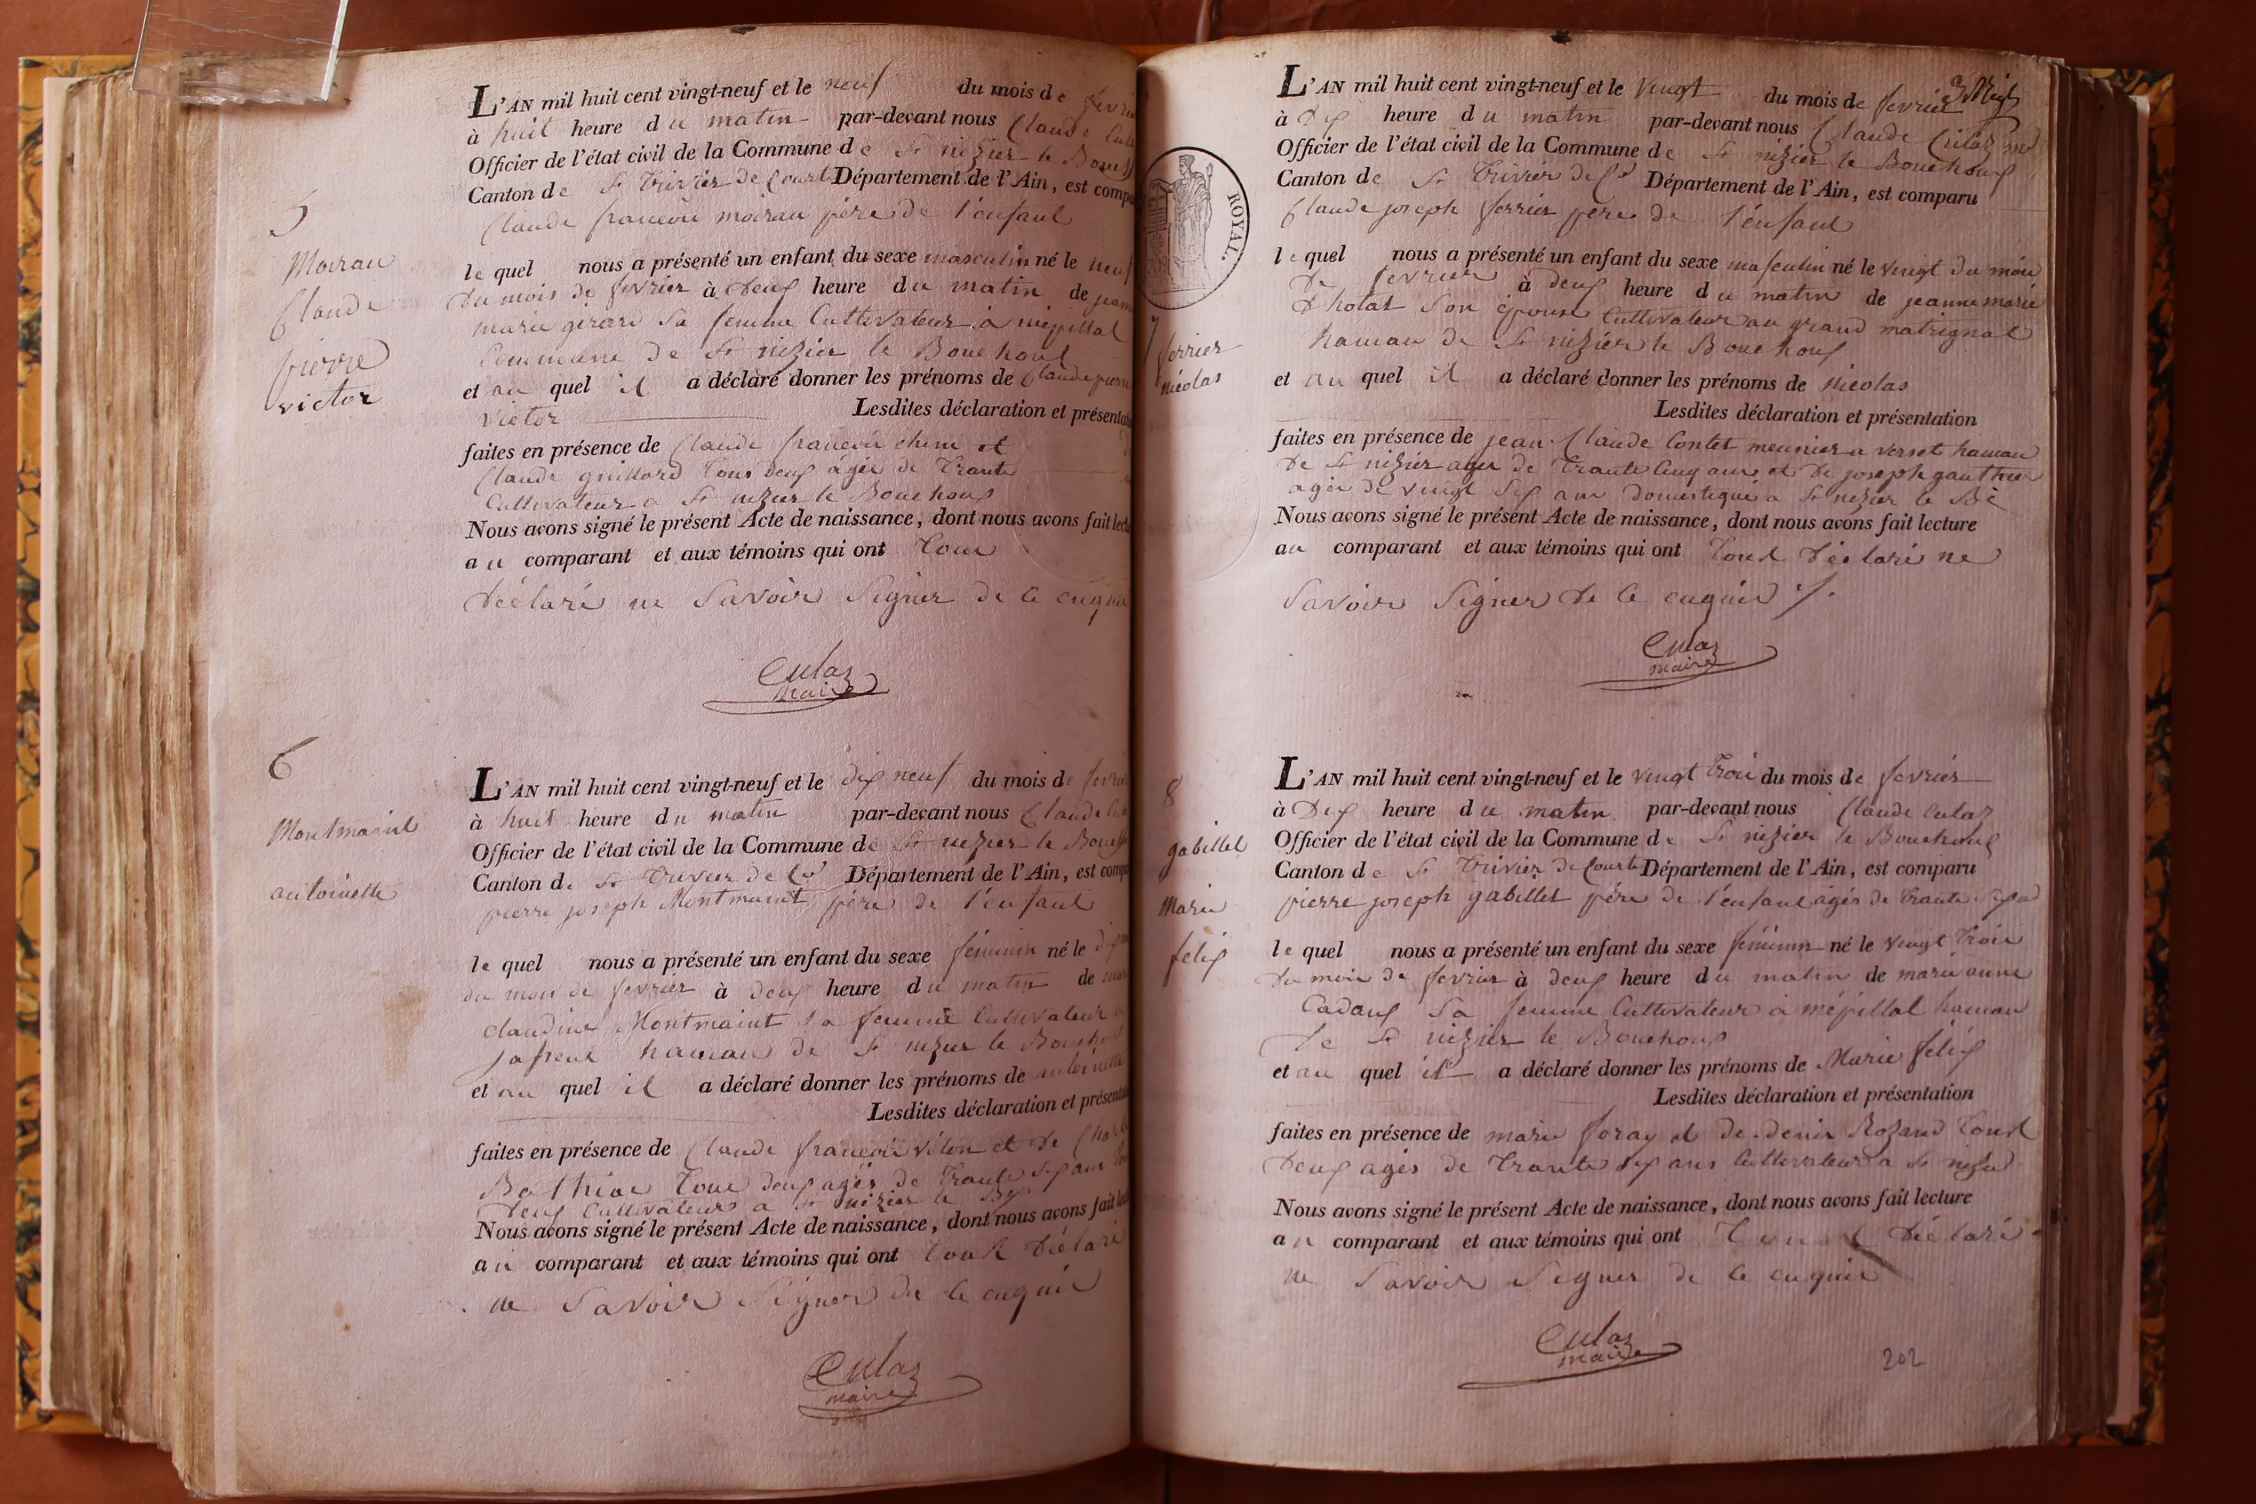 5
Moirau
Claude
pierre
victor
L'AN mil huit cent vingt-neuf et le neuf du mois de fevrie
à huit heure du matin par-devant nous Claude Cula
Officier de l'état civil de la Commune de St nizier le Bouch
Canton de St Trivier de Court Département de l'Ain, est compa
Claude francois moirau père de l'enfant
lequel nous a présenté un enfant du sexe masculin né le neuf
du mois de fevrier à deux heure du matin de jeanne
marie girard sa femme Cultivateur à mépillat
Commune de St nizier le Bouchoux
et au quel il a déclaré donner les prénoms de Claude pierre
victor Lesdites déclaration et présentati
faites en présence de Claude francois chene et
Claude guillard tous deux agée de trante
Cultivateur a St nizier le Bouchoux
Nous avons signé le présent Acte de naissance, dont nous avons fait lectu
au comparant et aux témoins qui ont tous
déclaré ne Savoir Signer de ce enquis
Culaz
maire
6
Montmaint
antoinette
L'AN mil huit cent vingt-neuf et le dix neuf du mois de fevrie
à huit heure du matin par-devant nous Claude Cu
Officier de l'état civil de la Commune de St nizier le Bouch
Canton de St Trivier de Cts Département de l'Ain, est compa
pierre joseph Montmaint père de l'enfant
lequel nous a présenté un enfant du sexe féminin né le dix
du mois de fevrier à deux heure du matin de mar
claudine Montmaint sa femme Cultivateur
hamau de St nizier le Bouchou
et au quel il a déclaré donner les prénoms de antoinette
Lesdites déclaration et présentati
faites en présence de Claude francois viton et de Charl
tous deux agés de trante six ans
deux Cultivateurs a St nizier le Bx
Nous avons signé le présent Acte de naissance, dont nous avons fait lec
au comparant et aux témoins qui ont tout déclaré
ne Savoir Signer de ce enquis
Culaz
maire
ROYAL.
7
ferrier
nicolas
L'AN mil huit cent vingt-neuf et le vingt du mois de fevrier
à dix heure du matin par-devant nous Claude Culaz
Officier de l'état civil de la Commune de St nizier le Bouchoux
Canton de St Trivier de Cs Département de l'Ain, est comparu
Claude joseph ferrier père de l'enfant
lequel nous a présenté un enfant du sexe masculin né le vingt du mois
De fevrier à deux heure du matin de jeanne marie
Dholat Son épouse Cultivateur au grand matrignat
hamau de St nizier le Bouchoux
et au quel il a déclaré donner les prénoms de nicolas
Lesdites déclaration et présentation
faites en présence de jean Claude Contet meunier a verset hamau
De St nizier agée de trante cinq ans et de joseph gauthier
agée de vingt six ans Domestique a St nizier le Bx
Nous avons signé le présent Acte de naissance, dont nous avons fait lecture
au comparant et aux témoins qui ont tout déclaré ne
Savoir Signer de ce enquis
Culaz
maire
8
gabillet
Marie
felix
L'AN mil huit cent vingt-neuf et le vingt trois du mois de fevrier
à Dix heure du matin par-devant nous Claude Culaz
Officier de l'état civil de la Commune de St nizier le Bouchoux
Canton de St Trivier de Courte Département de l'Ain, est comparu
pierre joseph gabillet père de l'enfant agés de trante
lequel nous a présenté un enfant du sexe féminin né le vingt trois
du mois de fevrier à deux heure du matin de marie anne
Cadoux Sa femme Cultivateur à mépillat hamau
De St nizier le Bouchoux
et au quel il a déclaré donner les prénoms de Marie félix
Lesdites déclaration et présentation
faites en présence de marie foray et de denis Rozand tout
Deux agés de trante six ans Cultivateur a St nizier
Nous avons signé le présent Acte de naissance, dont nous avons fait lecture
au comparant et aux témoins qui ont tout Déclaré
ne Savoir Signer de ce enquis
Culaz
maire
202